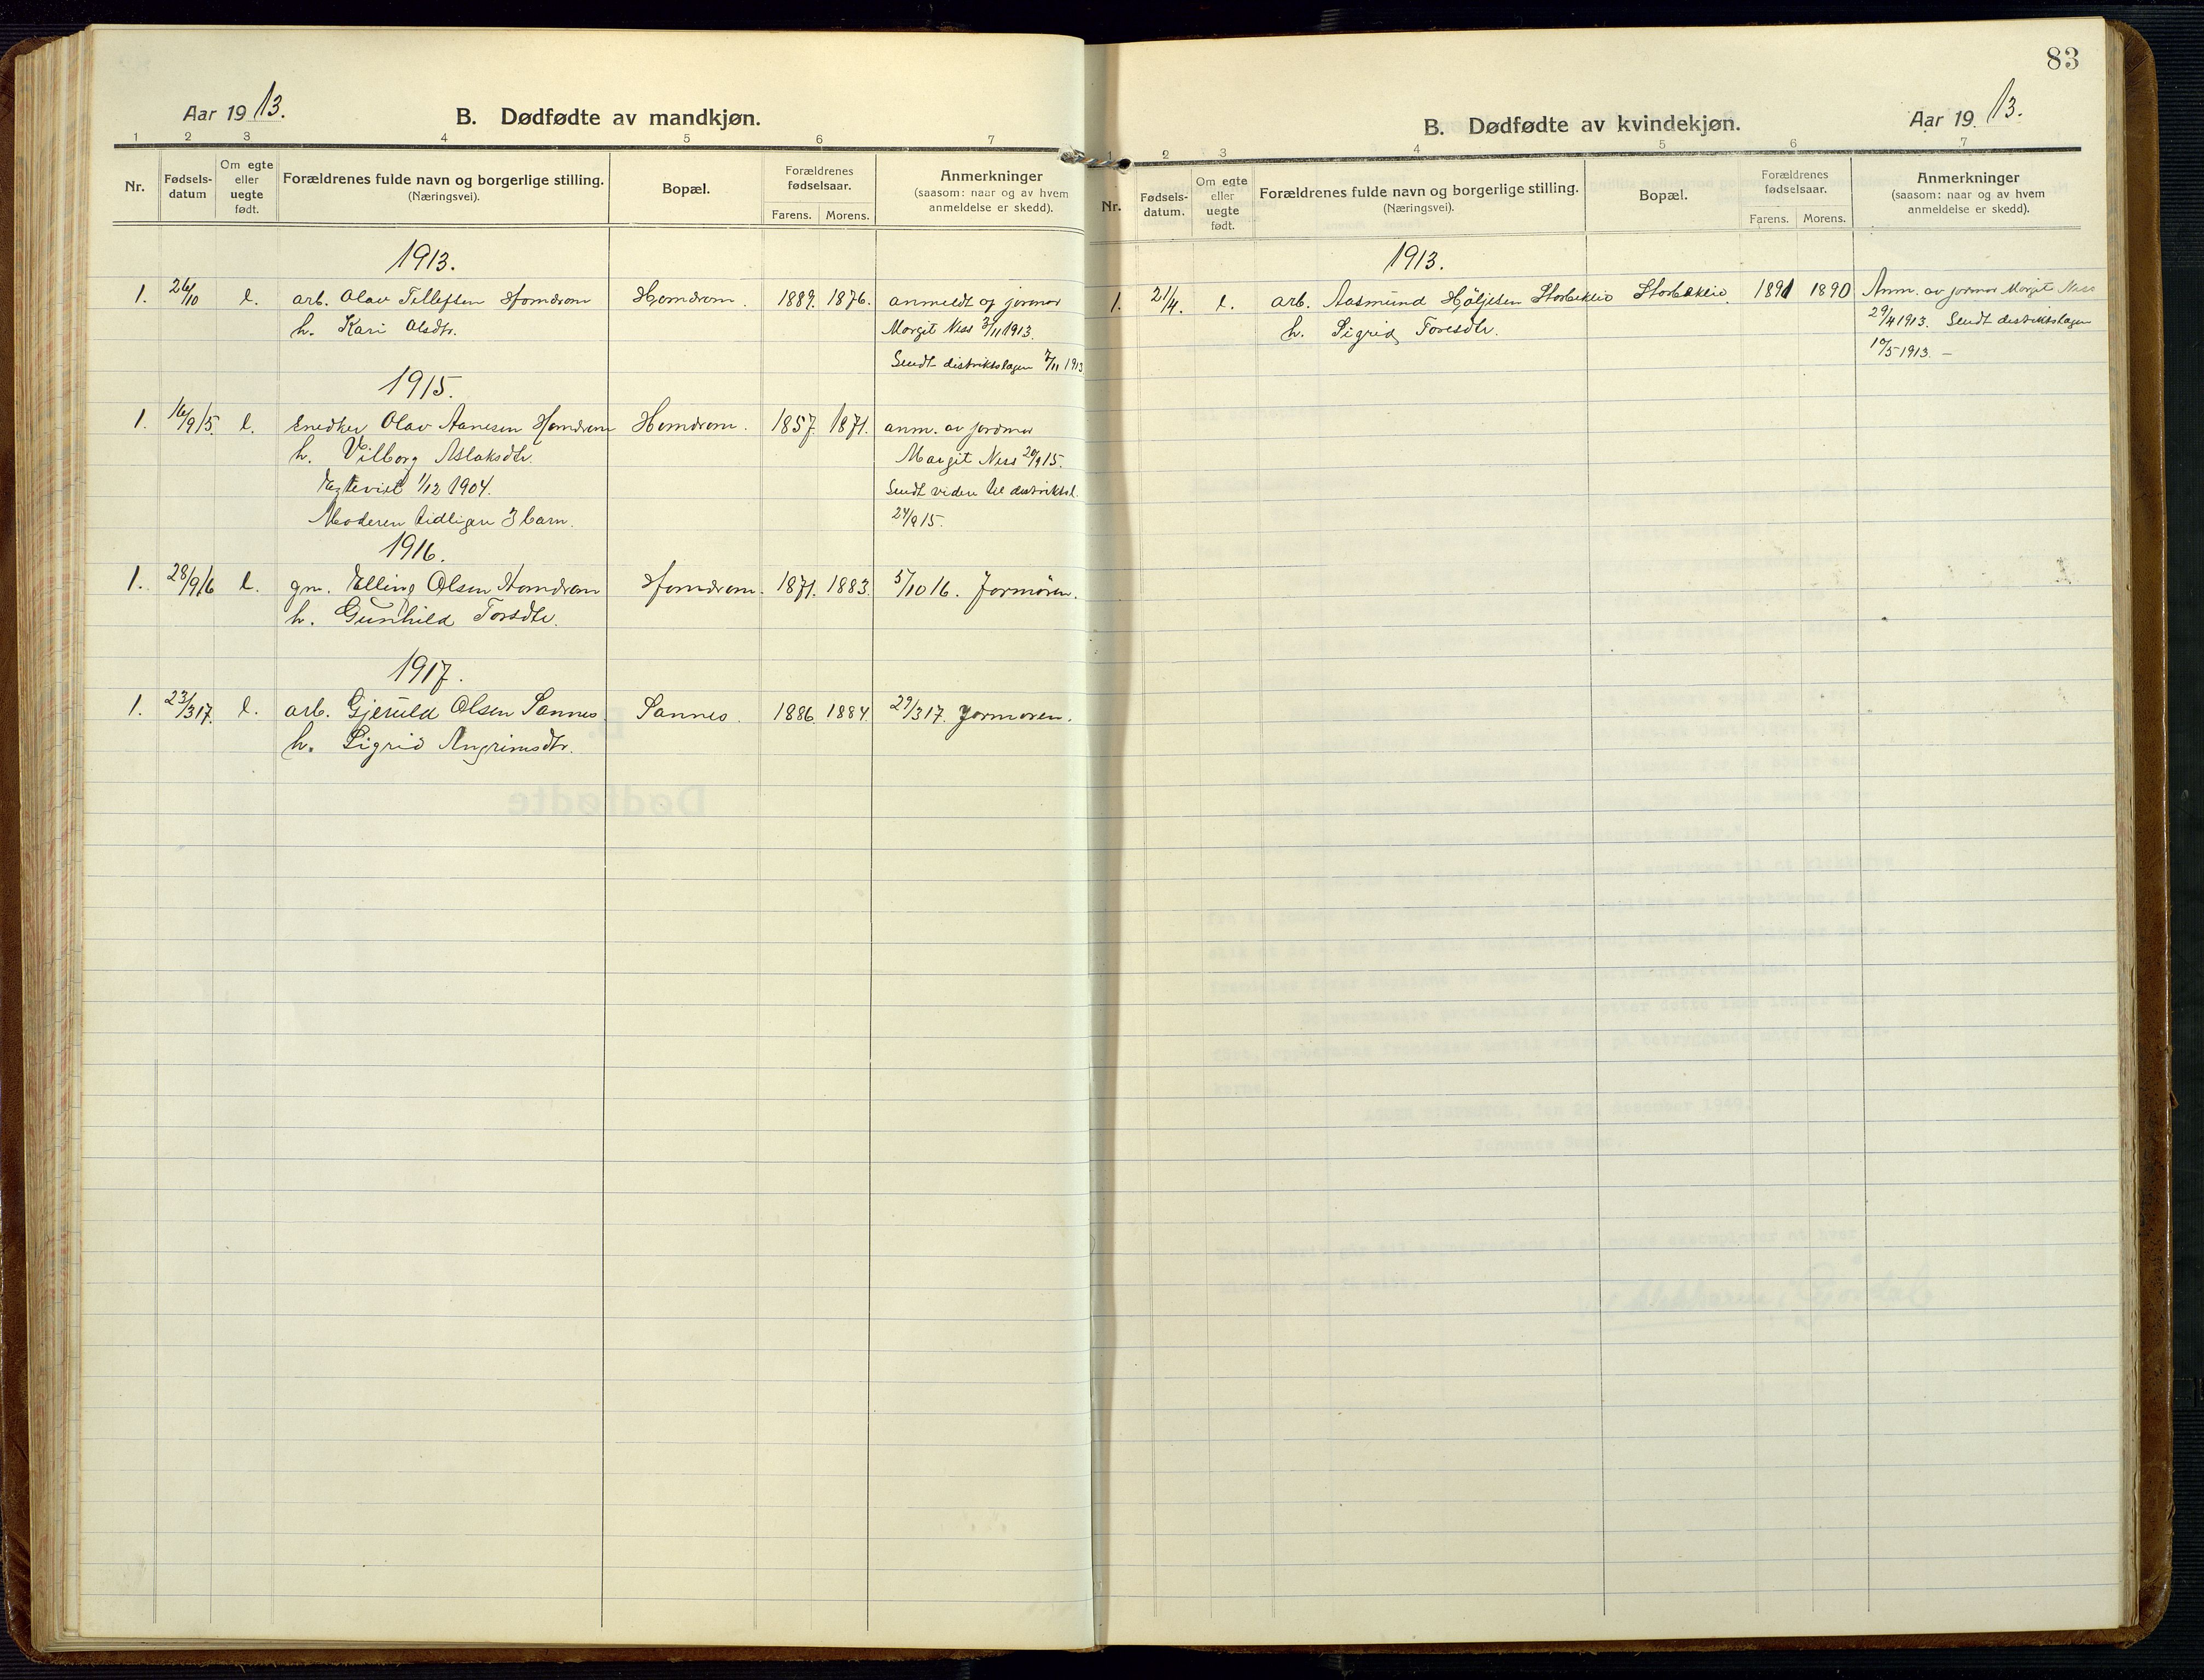 Aar 1913.
B. Dødfødte av mandkjøn.
1 2 3 4 5 6 7
Nr.
Fødsels-
datum
Om egte
eller
uegte
født.
Forældrenes fulde navn og borgerlige stilling.
(Næringsvei).
Bopæl.
Forældrenes
fødselsaar.
Farens. Morens.
Anmerkninger
(saasom: naar og av hvem
anmeldelse er skedd).
1913.
1. 26/10 e. arb. Olav Tellefsen Homdrom Homdrom. 1889. 1876. anmeldt af jormor
h. Kari Olsdtr. Margit Ness 3/11 1913.
Sendt distriktslægen 7/11 1913
1915.
1. 16/915. e. snedker Olav Aanesen Homdrom Homdrom. 1857. 1871. anm. av jordmor
h. Vilborg Aslaksdtr. Margit Ness 20/915.
Egtevid 1/12 1904. Sendt videre til distriktsl.
Moderen tidligere 3 barn. 24/915.
1916.
1. 28/916 e. gm. Elling Olsen Homdrom Homdrom. 1871. 1883. 5/10 16. Jormoren.
h. Gunhild Torsdtr.
1917.
1. 23/317. e. arb. Gjeruld Olsen Sannes. Sannes. 1886. 1884. 29/317. Jormoren.
h. Sigrid Angrimsdtr.
83
B. Dødfødte av kvindekjøn.
Aar 1913.
1 2 3 4 5 6 7
Nr.
Fødsels-
datum.
Om egte
eller
uegte
født.
Forældrenes fulde navn og borgerlige stilling.
(Næringsvei).
Bopæl.
Forældrenes
fødselsaar.
Farens. Morens.
Anmerkninger
(saasom: naar og av hvem
anmeldelse er skedd).
1913.
1. 21/4. e. arb. Aasmund Høljesen Storbeklio Storbeklio. 1891 1890 Anm. av jormor Margit Ness
h. Sigrid Toresdtr. 29/4 1913. Sendt distriktslægen
10/5 1913. –